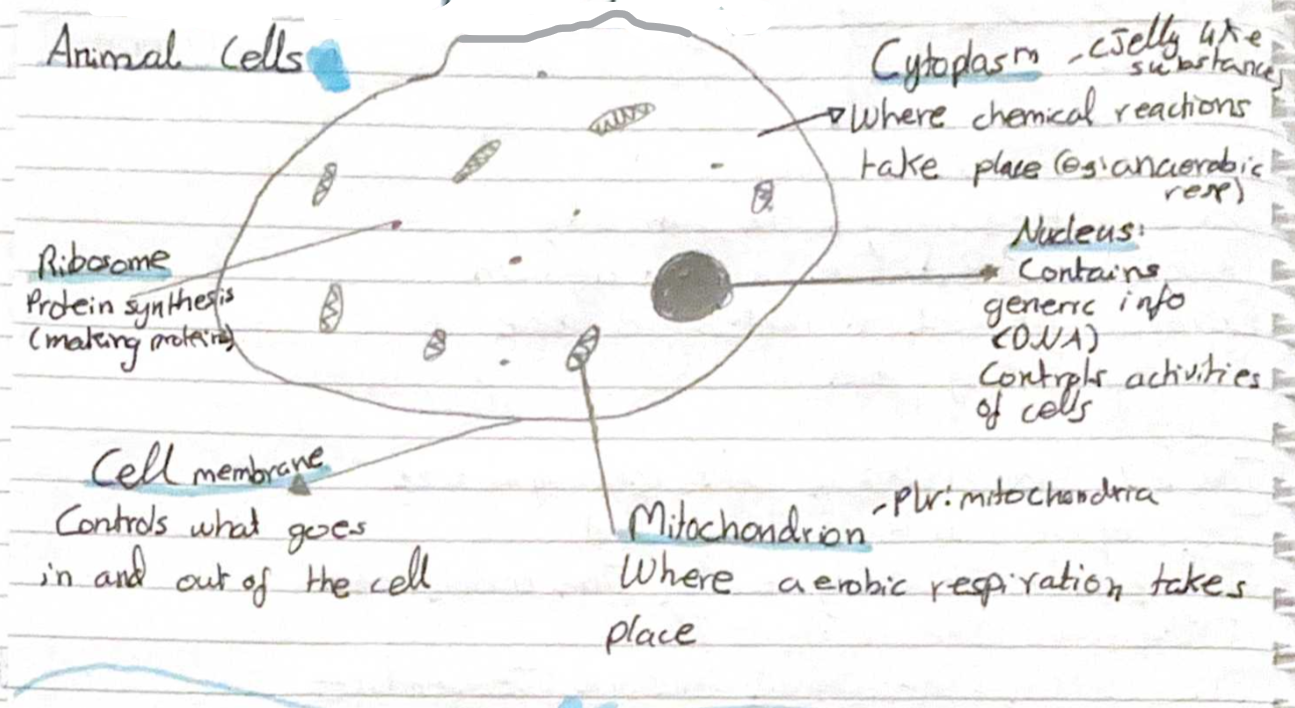 Animal Cells
Cytoplasm - (Jelly like
substance)
Where chemical reactions
take place (eg: anaerobic
resp)
Ribosome
Protein synthesis
(making proteins)
Nucleus:
Contains
generic info
(DNA)
Controls activities
of cells
Cell membrane
Controls what goes
in and out of the cell
Mitochondrion - Plu: mitochondria
Where aerobic respiration takes
place